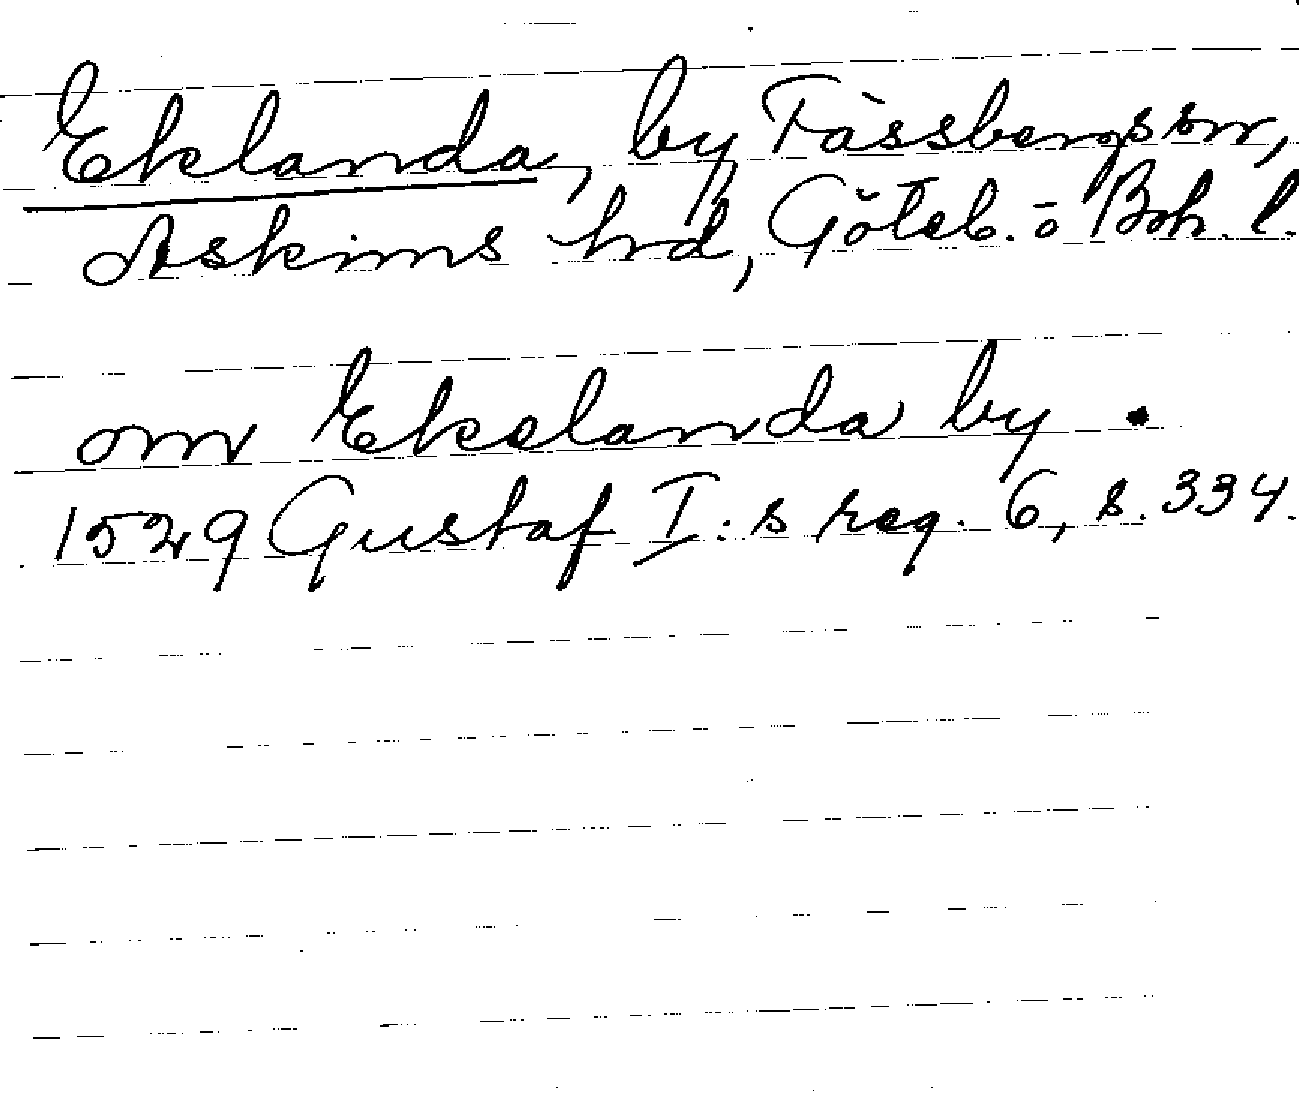 Eklanda, by Fässbergs sn,
Askims hd, Göteb. o Boh. l.
om Ekelanda by.
1529 Gustaf I:s reg. 6, s. 334.